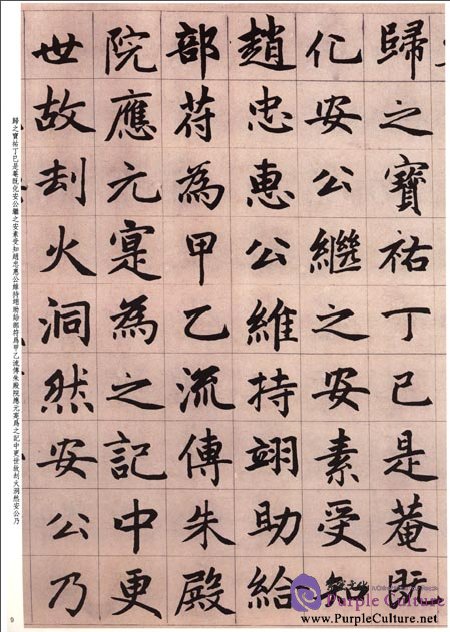 歸之寶祐丁巳是菴既
化安公繼之安素受知
趙忠惠公維持翊助給
部苻為甲乙流傳朱殿
院應元寔為之記中更
世故刦火洞然安公乃
歸之寶祐丁巳是菴既化安公繼之安素受知趙忠惠公維持翊助給部符爲甲乙流傳朱殿院應元寔爲之記中更世故刦火洞然安公乃
9
Purple Culture
www.PurpleCulture.net